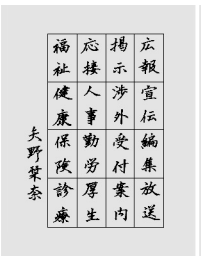 広報宣伝編集放送
掲示渉外受付案内
応接人事勤労厚生
福祉健康保険診療
矢野栞奈